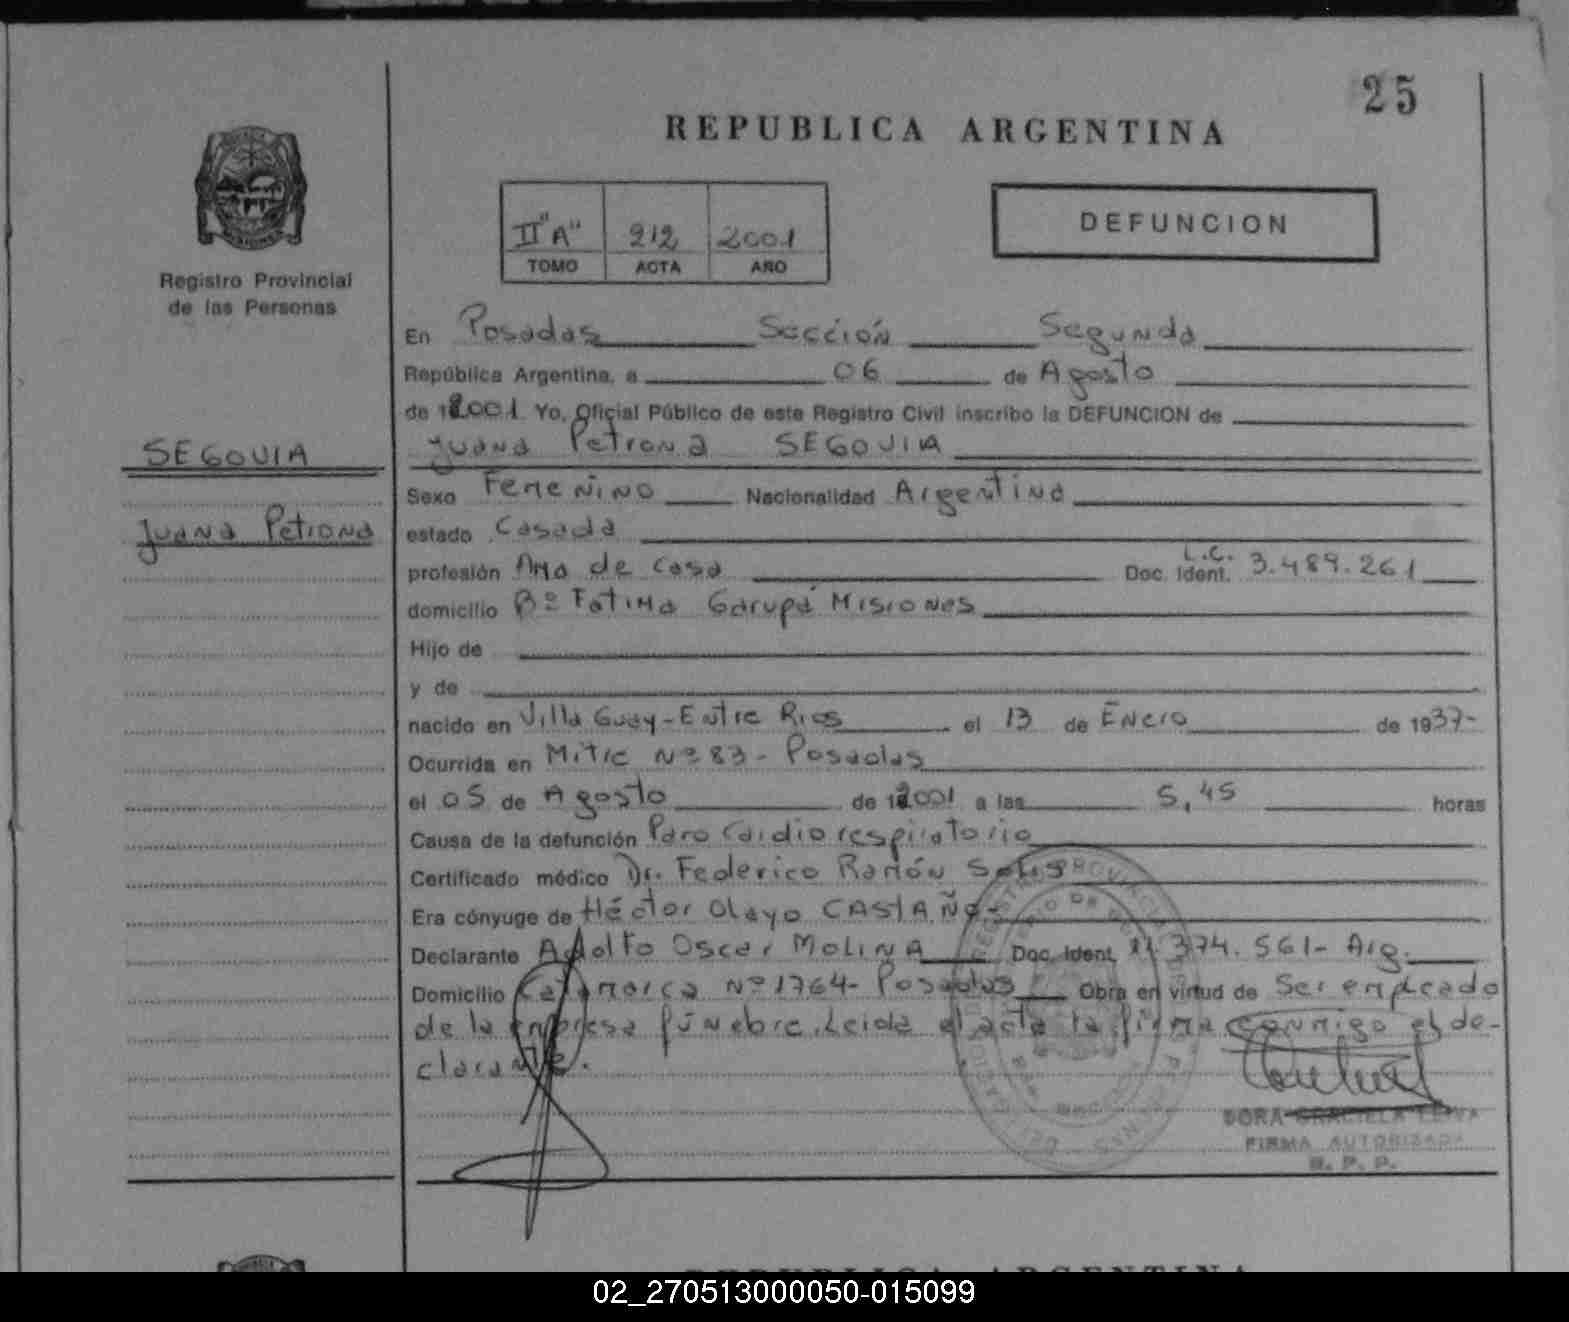 25
REPUBLICA ARGENTINA
Registro Provincial
de las Personas
II "A" 212 2001
TOMO ACTA AÑO
DEFUNCION
SEGOVIA
Juana Petrona
En Posadas Sección Segunda
República Argentina, a 06 de Agosto
de 2001 Yo, Oficial Público de este Registro Civil inscribo la DEFUNCION de
Juana Petrona SEGOVIA
Sexo Femenino Nacionalidad Argentina
estado Casada
profesión Ama de Casa Doc. Ident. L.C. 3.489.261
domicilio Bº Fatima Garupá Misiones
Hijo de
y de
nacido en Villa Guay-Entre Rios el 13 de Enero de 1937-
Ocurrida en Mitre Nº 83 - Posadas
el 05 de Agosto de 2001 a las 5,45 horas
Causa de la defunción Paro Cardiorespiratorio
Certificado médico Dr. Federico Ramón Solis
Era cónyuge de Héctor Olayo CASTAÑO-
Declarante Adolfo Oscar MOLINA Doc. Ident. 11.374.561- Arg.
Domicilio Catamarca Nº 1764- Posadas Obra en virtud de Ser empleado
de la empresa fúnebre. Leida el acta la firma conmigo el de-
clarante.
DORA GRACIELA LEIVA
FIRMA AUTORIZADA
R. P. P.
REPUBLICA ARGENTINA
02_270513000050-015099